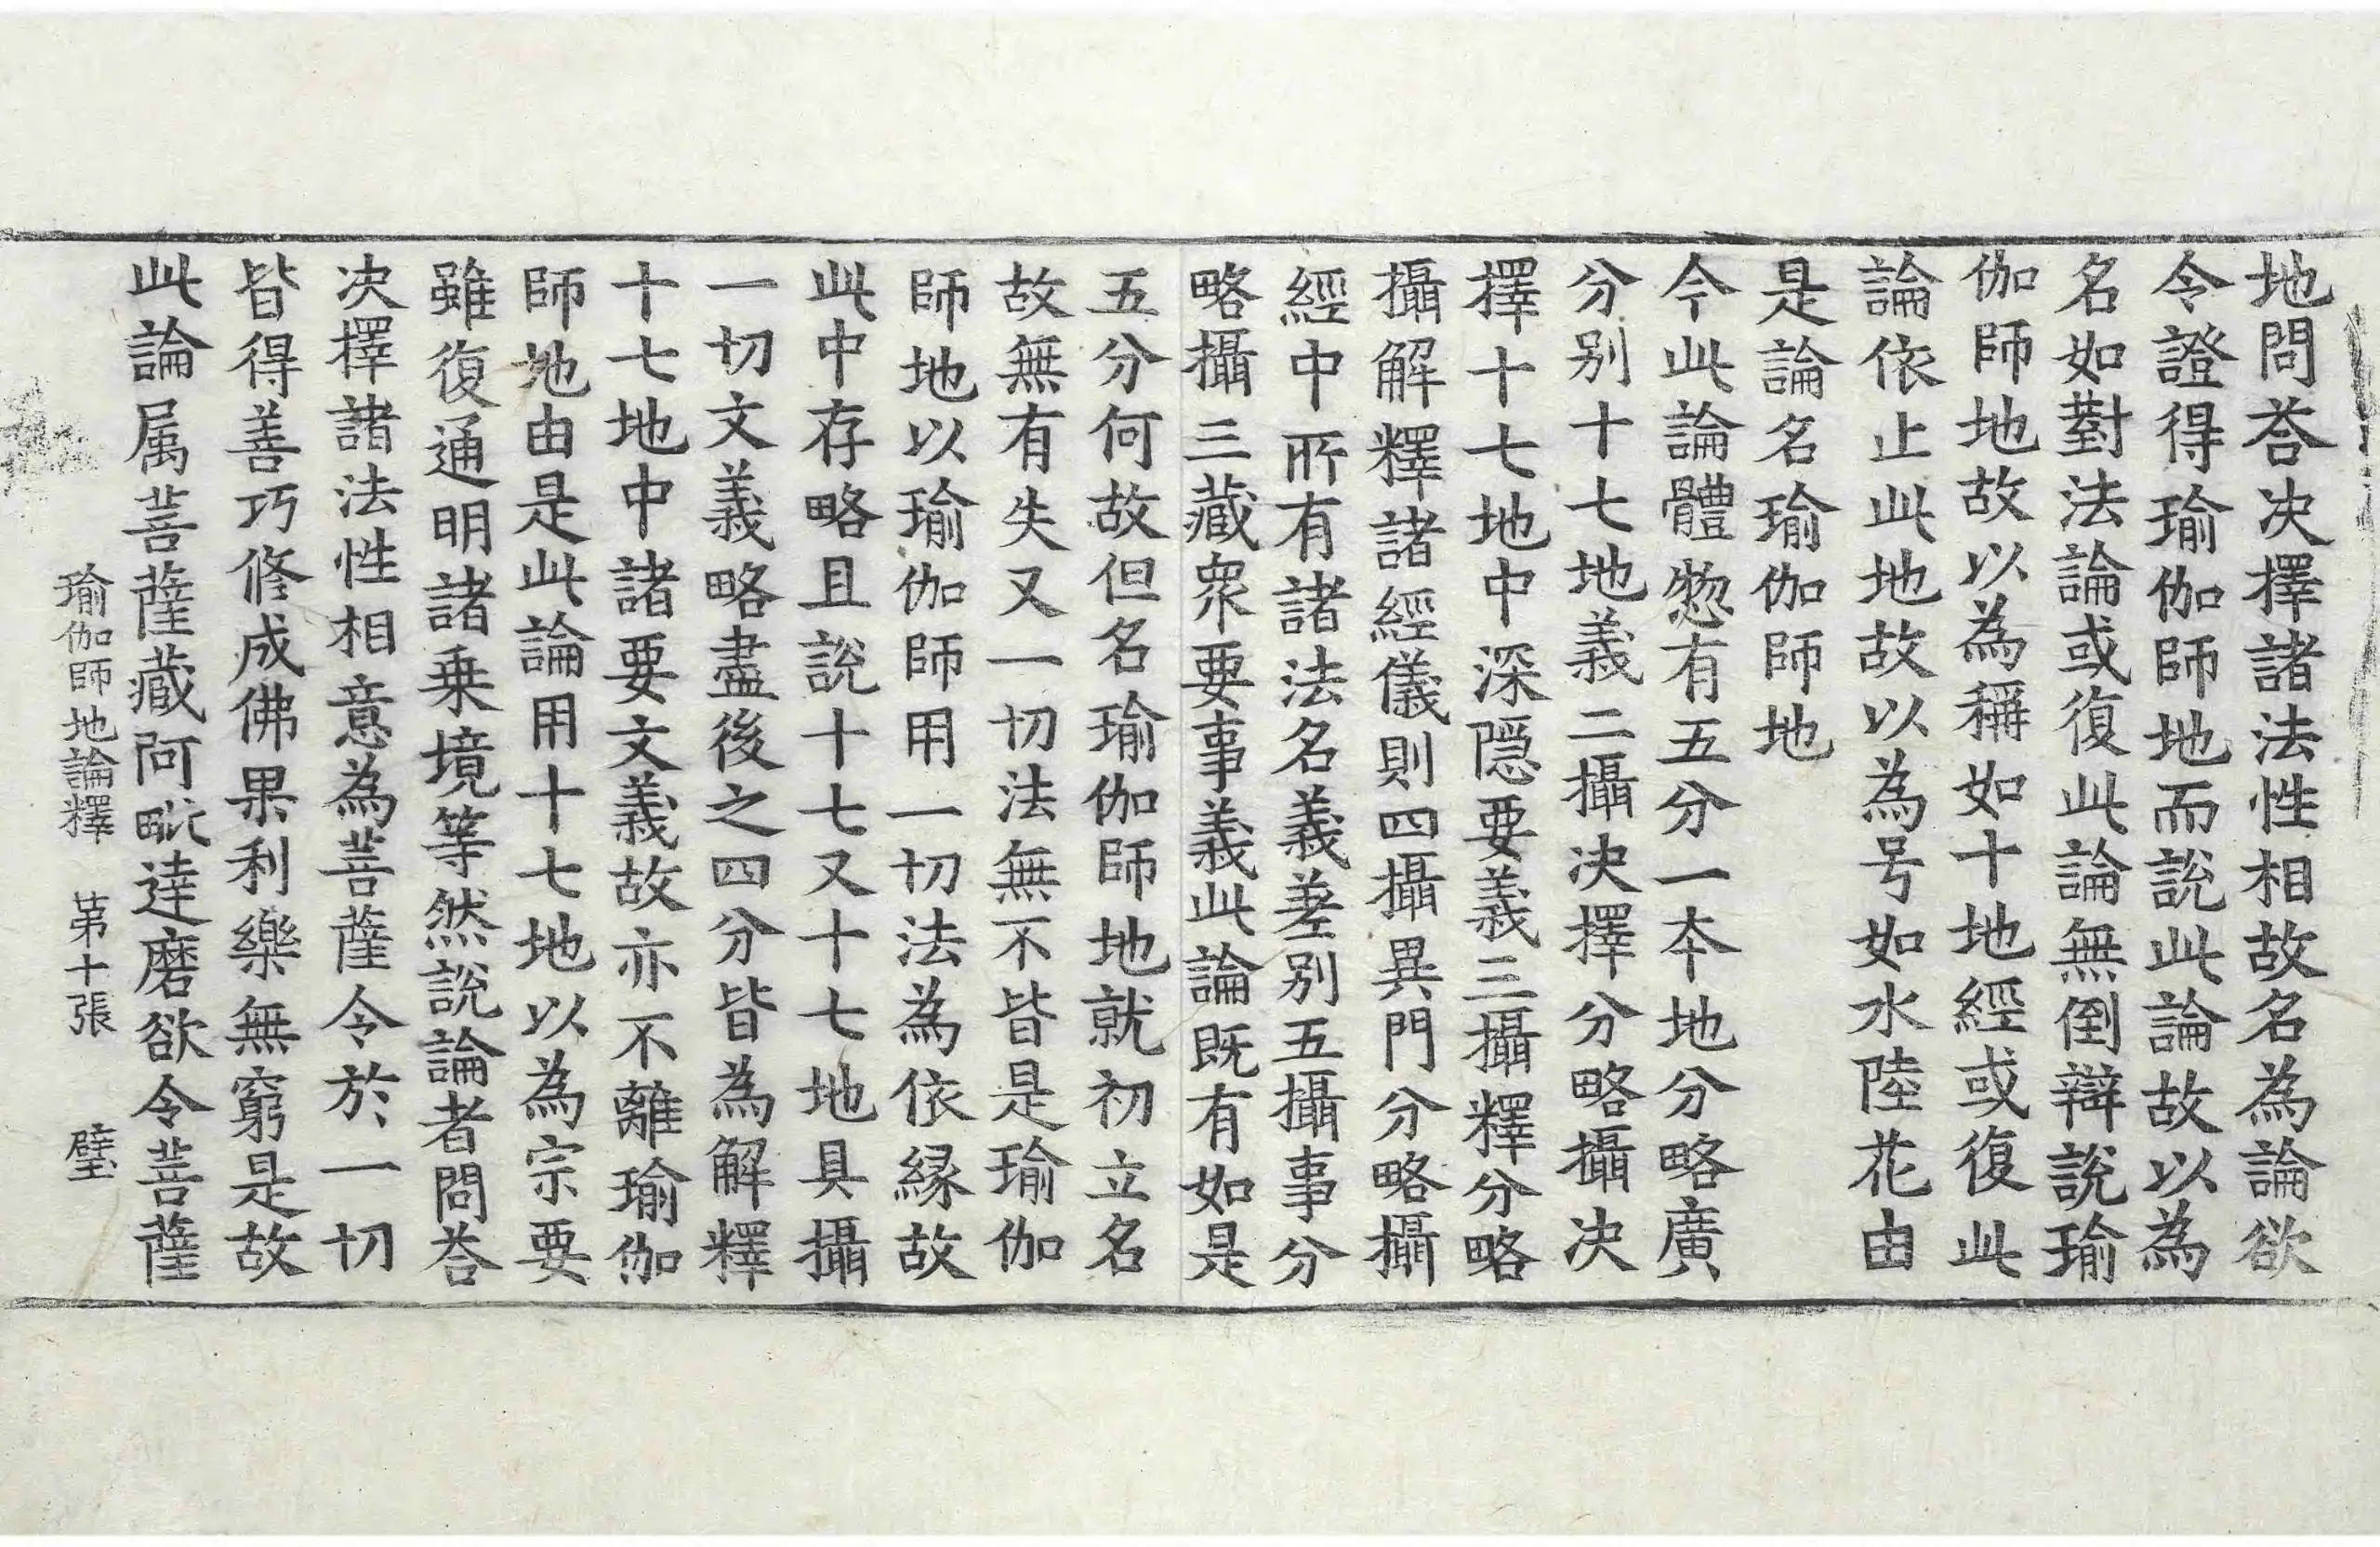 地問荅决擇諸法性相故名為論欲
令證得瑜伽師地而說此論故以為
名如對法論或復此論無倒辯說瑜
伽師地故以為稱如十地經或復此
論依止此地故以為号如水陸花由
是論名瑜伽師地
今此論體惣有五分一本地分略廣
分别十七地義二攝决擇分略攝决
擇十七地中深隠要義三攝釋分略
攝解釋諸經儀則四攝異門分略攝
經中所有諸法名義差别五攝事分
略攝三藏衆要事義此論既有如是
五分何故但名瑜伽師地就初立名
故無有失又一切法無不皆是瑜伽
師地以瑜伽師用一切法為依縁故
此中存略且說十七又十七地具攝
一切文義略盡後之四分皆為解釋
十七地中諸要文義故亦不離瑜伽
師地由是此論用十七地以為宗要
雖復通明諸乗境等然說論者問荅
决擇諸法性相意為菩薩令於一切
皆得善巧修成佛果利樂無窮是故
此論属菩薩藏阿毗達磨欲令菩薩
瑜伽師地論釋　第十張　璧